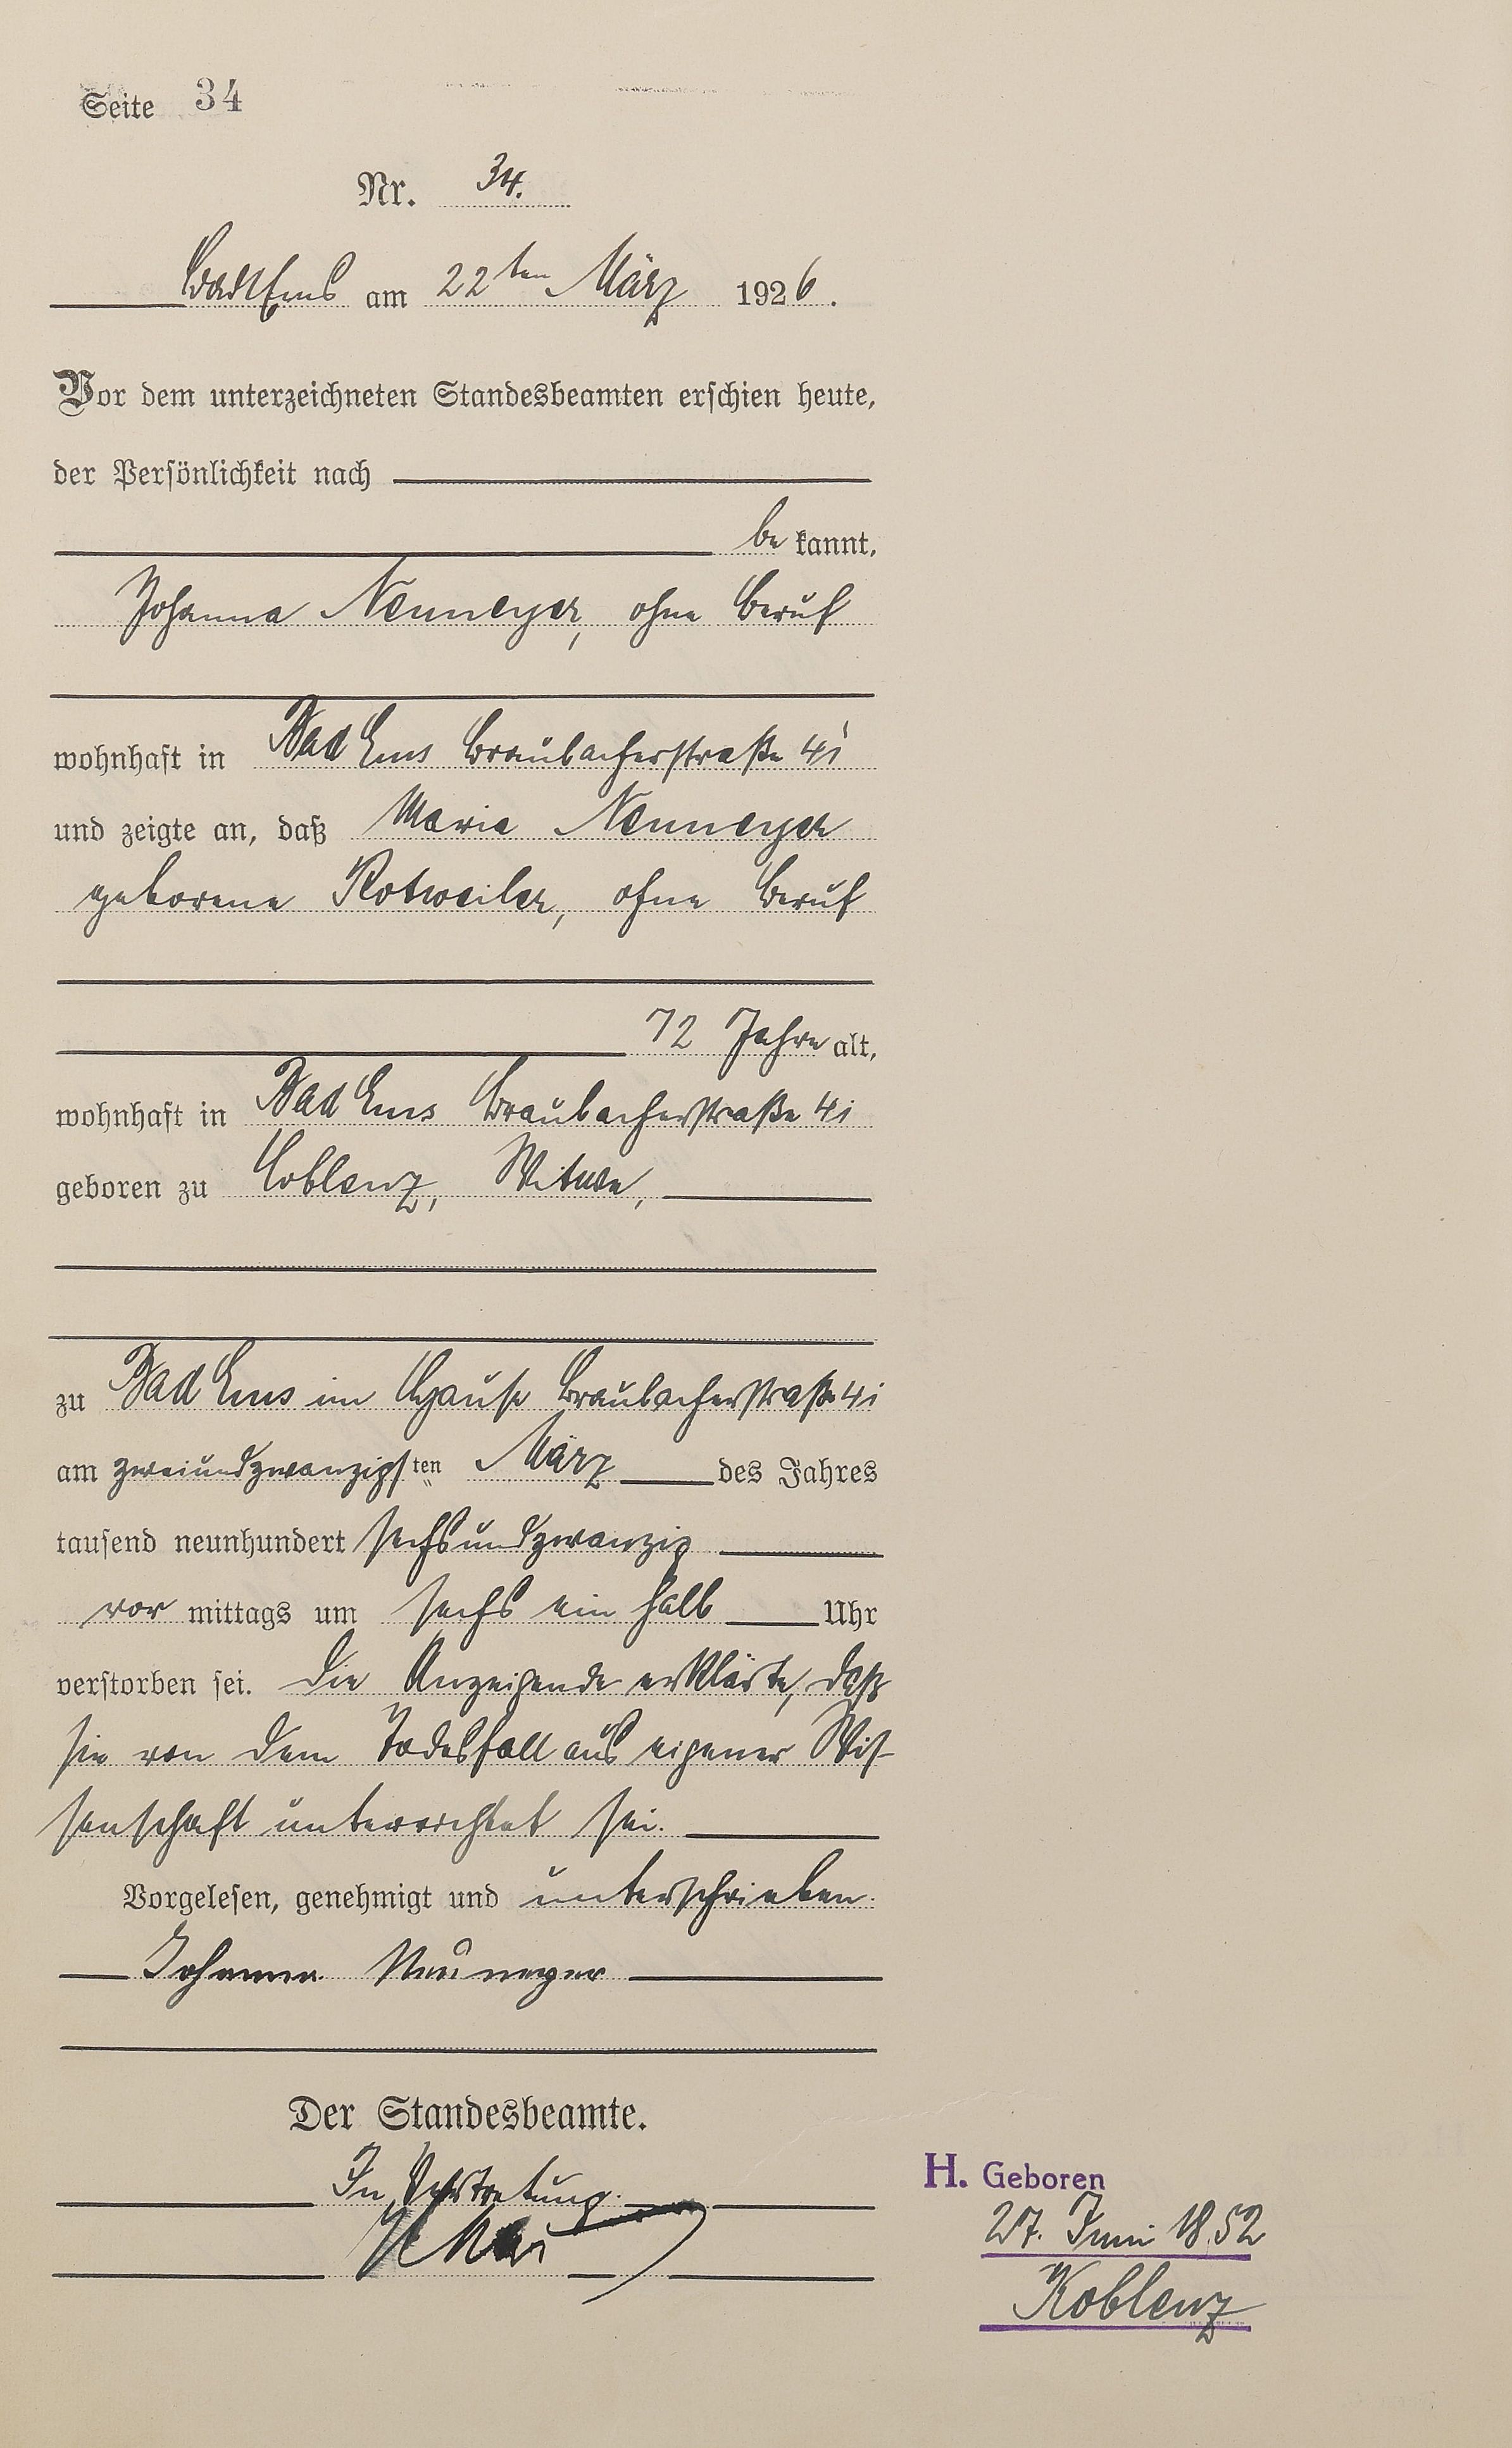 Seite 34
Nr. 34.
Bad Ems am 22ten März 1926.
Vor dem unterzeichneten Standesbeamten erschien heute,
der Persönlichkeit nach
be kannt,
Johanna Neumeyer, ohne Beruf
wohnhaft in Bad Ems Braubacherstraße 41
und zeigte an, daß Maria Neumeyer
geborene Rotweiler, ohne Beruf
72 Jahre alt,
wohnhaft in Bad Ems Braubacherstraße 41
geboren zu Coblenz, Witwe,
zu Bad Ems im Hause Braubacherstraße 41
am zweiundzwanzigsten März des Jahres
tausend neunhundert sechsundzwanzig
vor mittags um sechs ein halb Uhr
verstorben sei. Die Anzeigende erklärte, daß
sie von dem Todesfall aus eigener Wis-
senschaft unterrichtet sei.
Vorgelesen, genehmigt und unterschrieben.
Johanna Neumeyer
Der Standesbeamte.
In Vertretung.
H. Geboren
27. Juni 1852
Koblenz